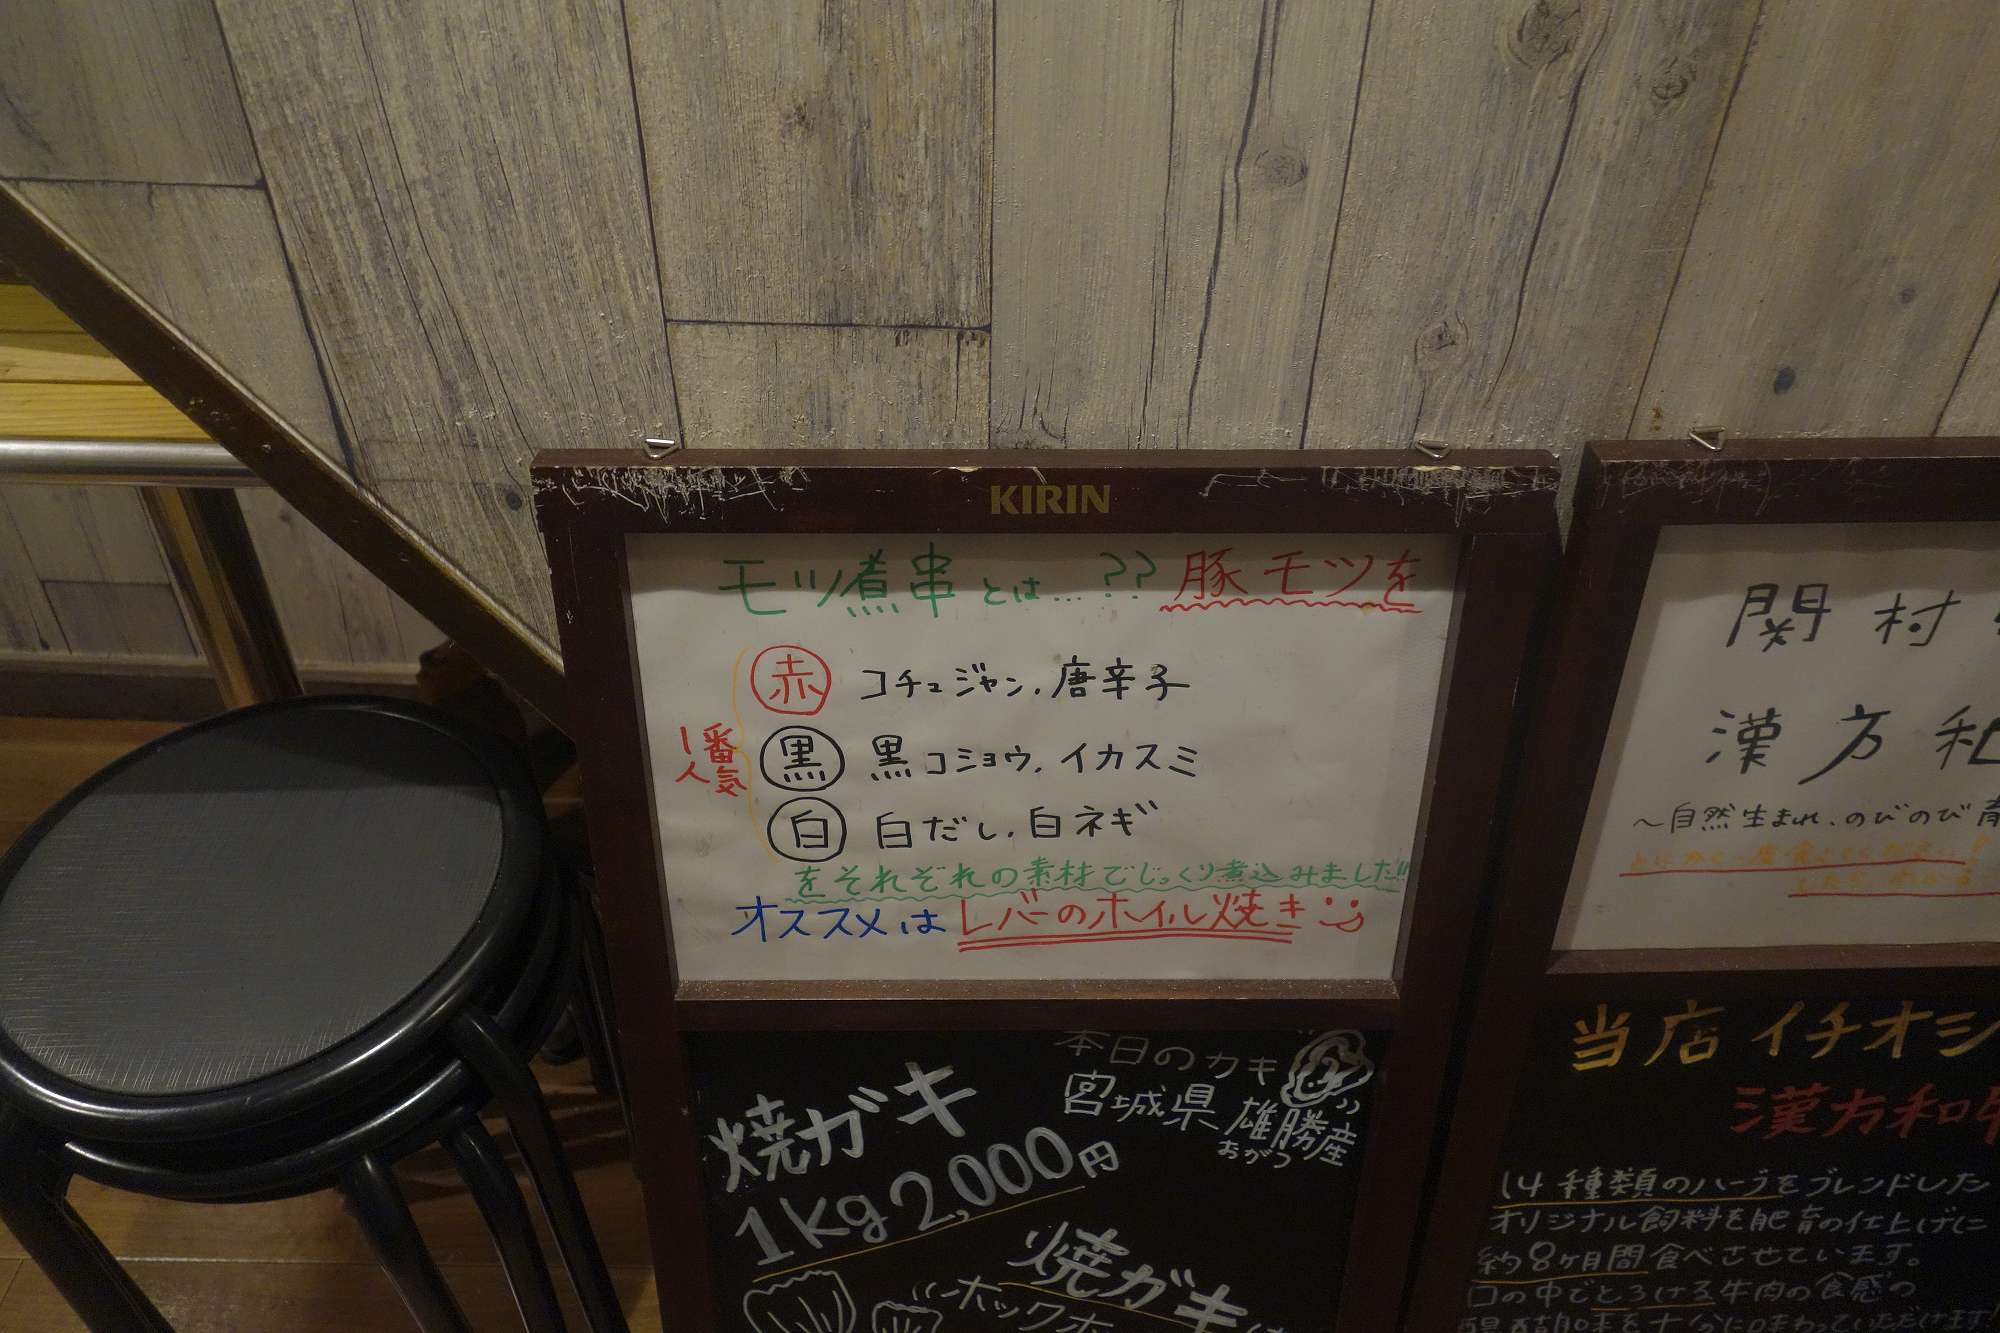 KIRIN
モツ煮串とは…?? 豚モツを
赤 コチュジャン.唐辛子
1番人気
黒 黒コショウ.イカスミ
白 白だし.白ネギ
をそれぞれの素材でじっくり煮込みました!!
オススメは レバーのホイル焼き
本日のカキ
宮城県 雄勝産
おがつ
焼ガキ
1kg 2,000円
焼ガキ
関村
漢方和
~自然生まれ、のびのび育
当店イチオシ
漢方和牛
14種類のハーブをブレンドした
オリジナル飼料を肥育の仕上げに
約8ヶ月間食べさせています。
口の中でとろける牛肉の食感の